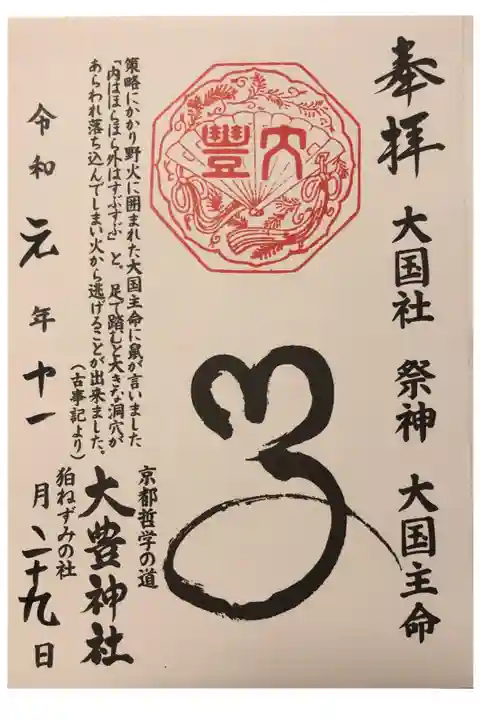 奉拝
大国社 祭神 大国主命
大豊
策略にかかり野火に囲まれた大国主命に鼠が言いました
「内はほらほら外はすぶすぶ」と、足で踏むと大きな洞穴が
あらわれ落ち込んでしまい火から逃げることが出来ました。
(古事記より)
京都哲学の道
大豊神社
狛ねずみの社
令和元年十一月二十九日